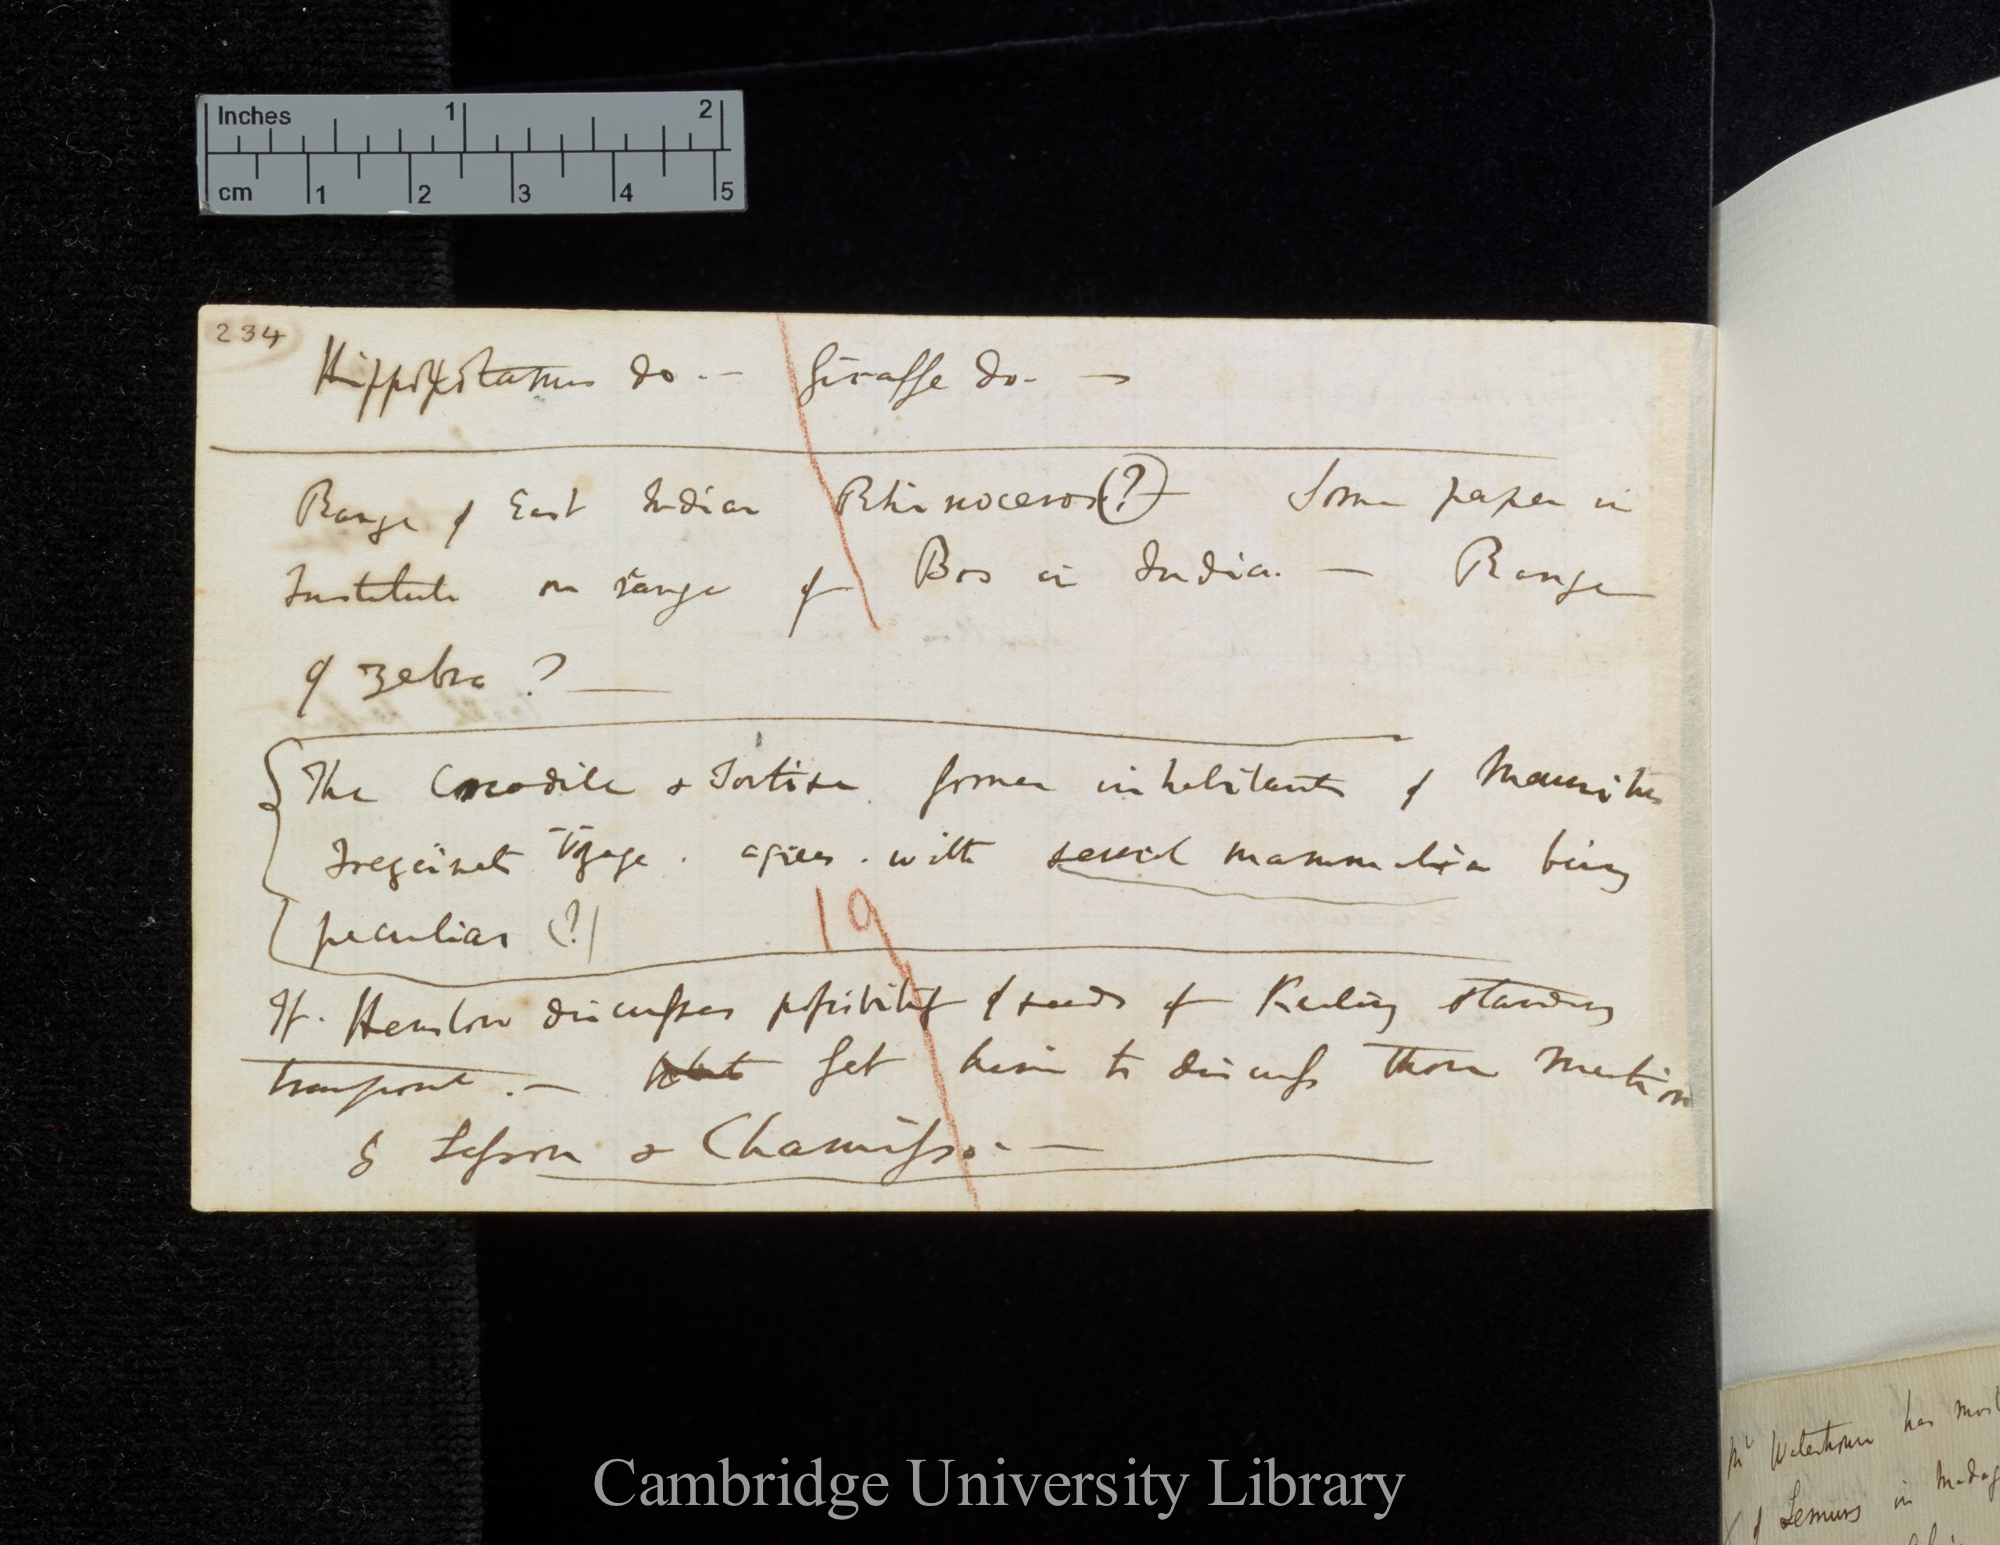 Inches 1 2
cm 1 2 3 4 5
234
Hippopotamus do. — Giraffe do. —
Range of East Indian Rhinoceros (?) Some paper in
Institute on range of Bos in India. — Range
of zebra? —
The Crocodile & Tortise former inhabitants of Mauritius
Freycinet Voyage. agrees. with several mammalia being
peculiar (?)
19
If. Henslow discusses possibility of seeds of Keeling standing
transport. — Get him to discuss those mention
Lesson & Chamisso. —
Mr Waterhouse has
of Lemurs in
Cambridge University Library